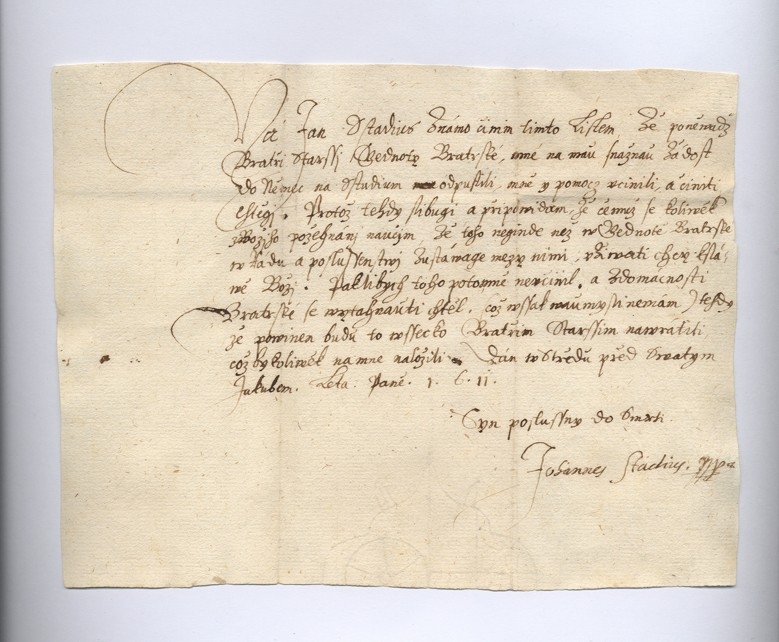 Já Jan Stadius Známo činim timto Listem, Že poněwadž
Bratři Starssj Gednoty Bratrské, mne na mau snažnau Žádost
do Němec na Studium odpustili, mně y pomocz včinili, a činiti
chtěgj. Protož tehdy slibugi a připowidám, Že čemuž se koliwěk
z Božjho požehnánj naučjm, Že toho neginde nez w Gednotě Bratrské
w řádu a poslussenstwj zustáwage mezy nimi, vžiwati chcy k slá-
wě Božj. Paklibych toho potomně nevčinil, a z domacnosti
Bratrské se wytahnauti chtěl, (což wssak w aumyslu nemám) tehdy
že powinen budu to wssecko Bratřim Starssim nawrátiti,
cožbykoliwěk na mne naložili. Dán w Středu před Swatym
Jakubem. Léta Páně. 1.6.11.
Syn poslussny do Smrti.
Johannes Stadius. mp